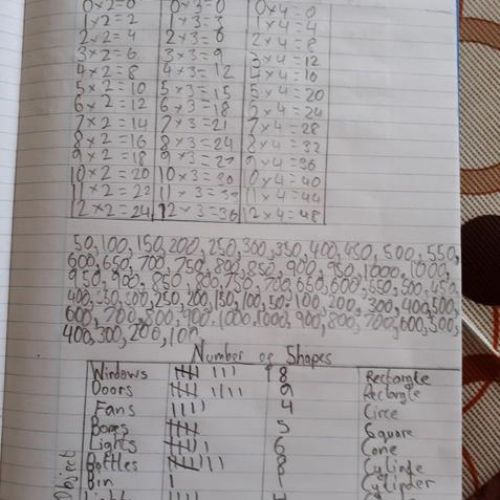 0×2=0 0×3=0 0×4=0
1×2=2 1×3=3 1×4=4
2×2=4 2×3=6 2×4=8
3×2=6 3×3=9 3×4=12
4×2=8 4×3=12 4×4=16
5×2=10 5×3=15 5×4=20
6×2=12 6×3=18 6×4=24
7×2=14 7×3=21 7×4=28
8×2=16 8×3=24 8×4=32
9×2=18 9×3=27 9×4=36
10×2=20 10×3=30 10×4=40
11×2=22 11×3=33 11×4=44
12×2=24 12×3=36 12×4=48
50,100,150,200,250,300,350,400,450,500,550,
600,650,700,750,800,850,900,950,1000,1000,
950,900,850,800,750,700,650,600,550,500,450
400,350,300,250,200,150,100,50,100,200,300,400,500,
600,700,800,900,1000,1000,900,800,700,600,500,
400,300,200,100
Number of Shapes
Object
Windows 8 Rectangle
Doors 9 Rectangle
Fans 4 Circe
Boxes 5 Square
Lights 6 Cone
Bottles 8 Cylinde
Bin 1 Cylinder